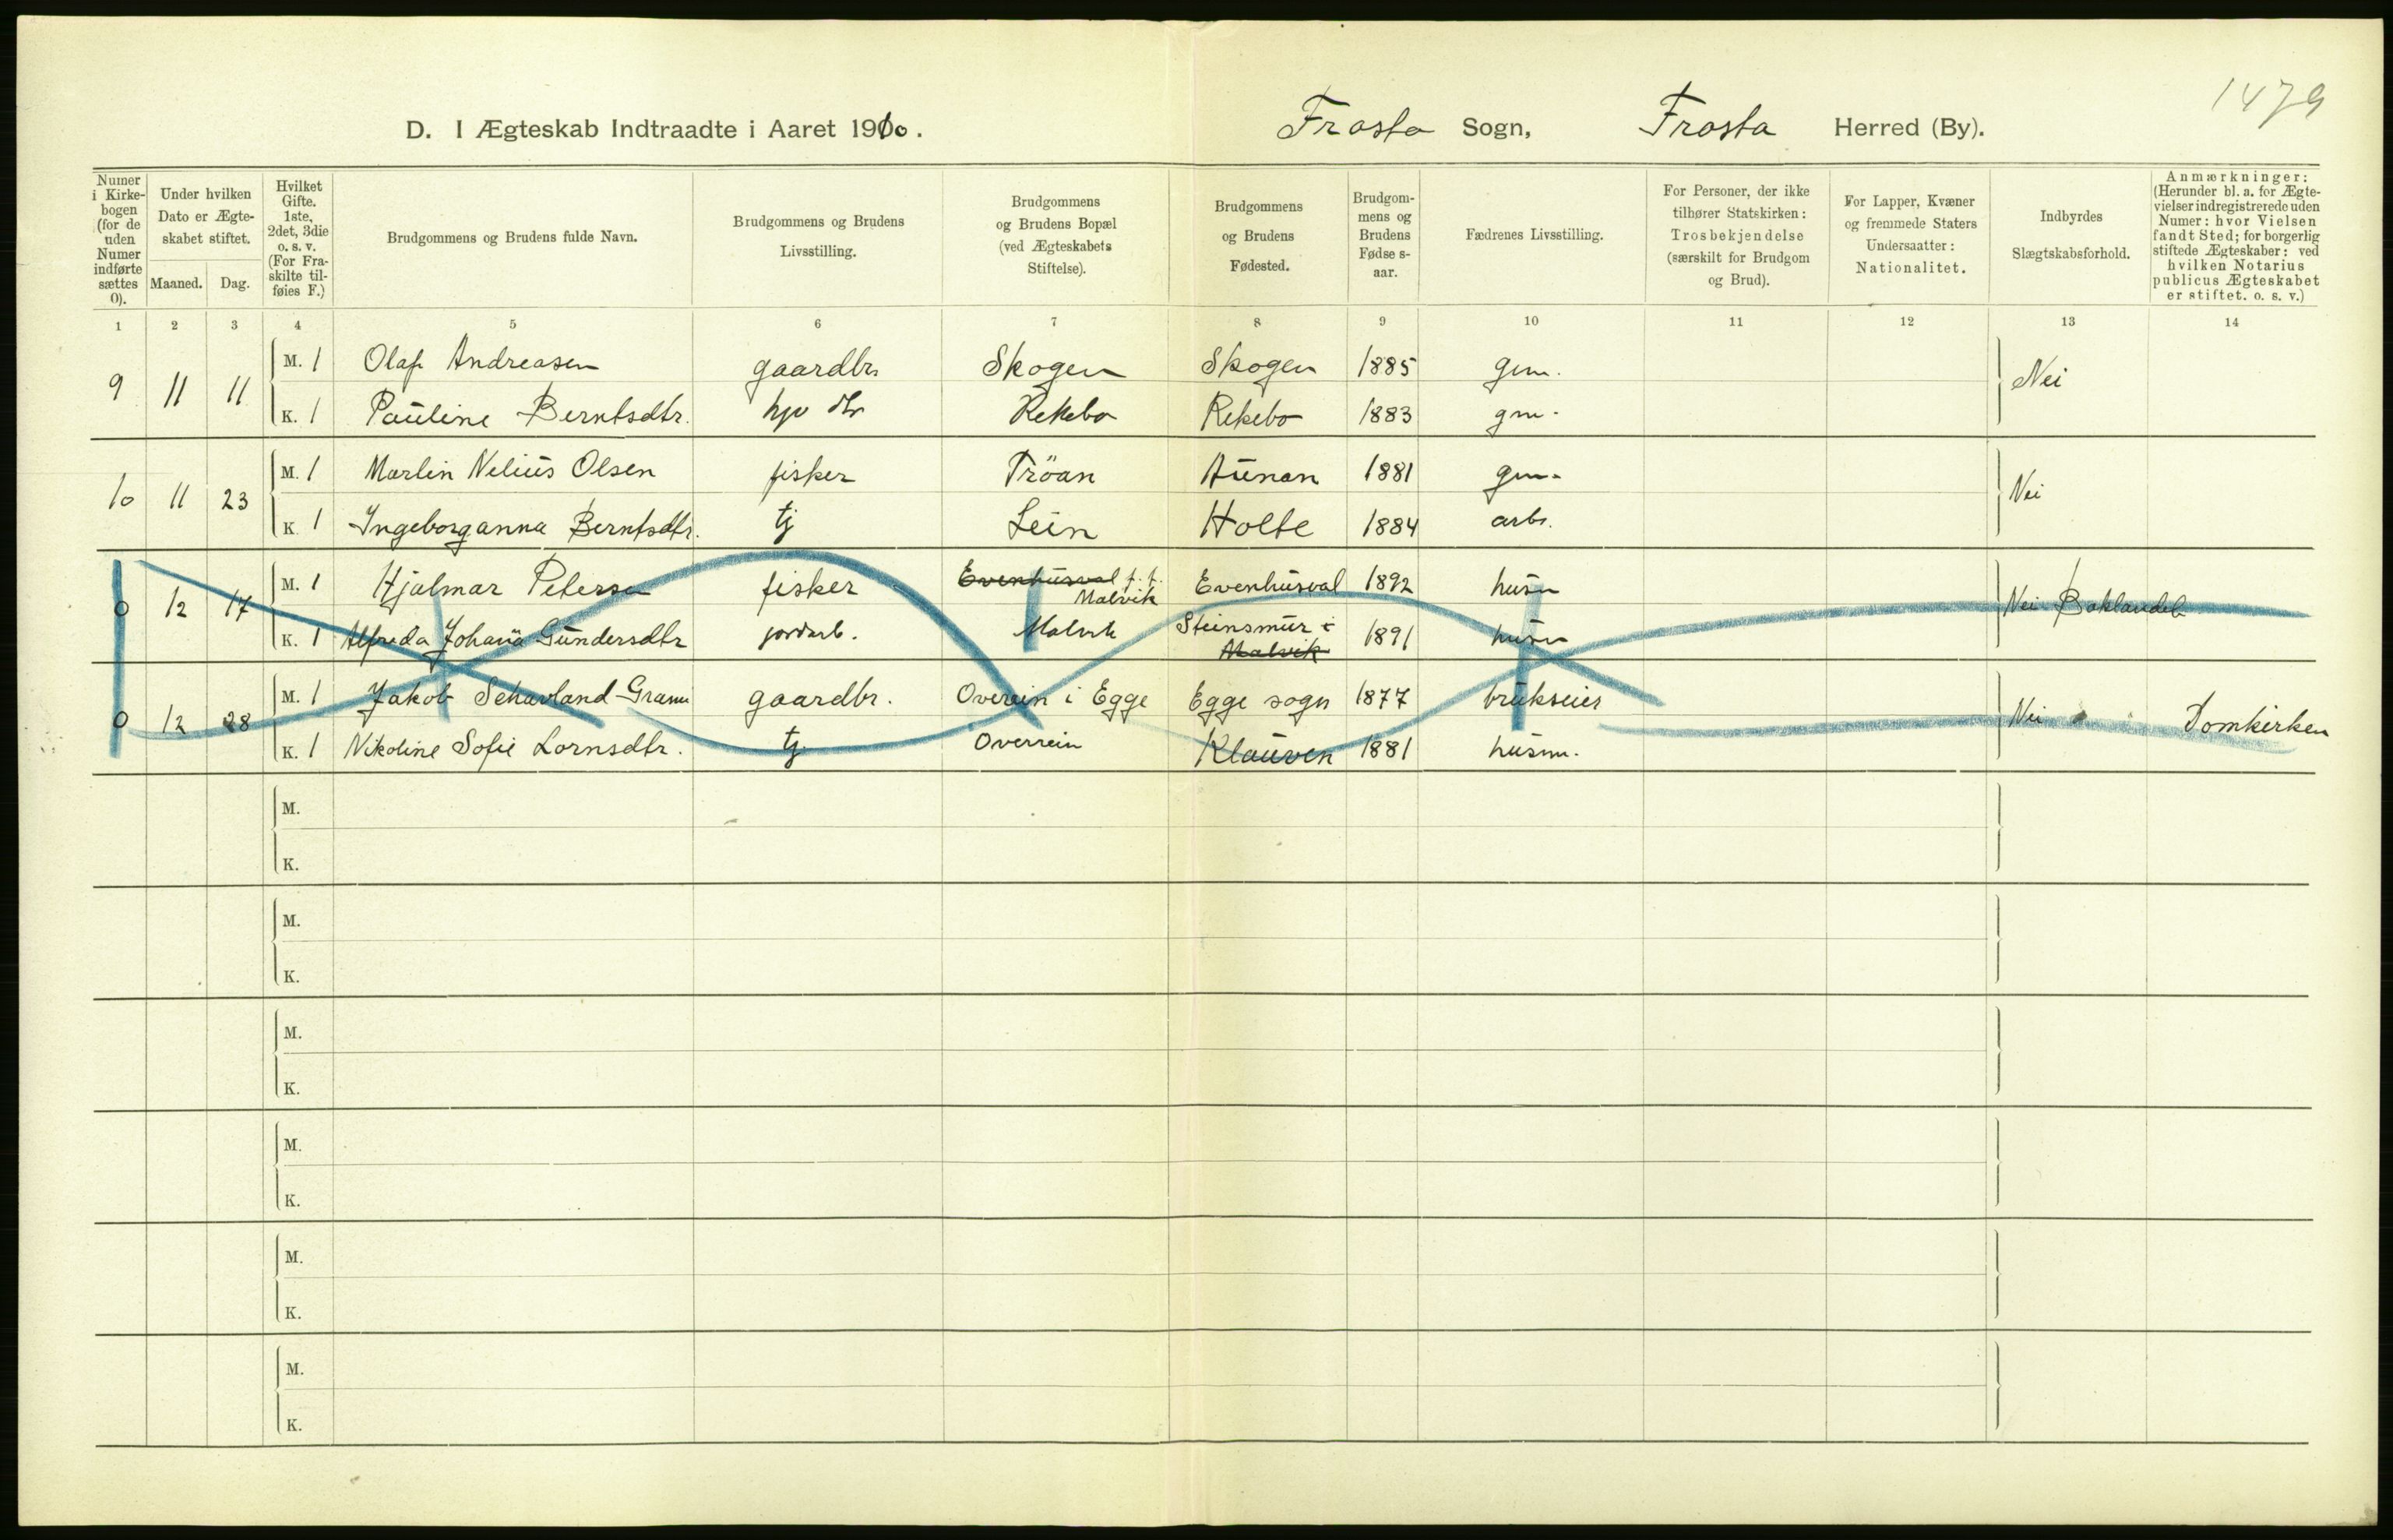 1479
D. I Ægteskab Indtraadte i Aaret 1910. Frosta Sogn, Frosta Herred (By).
Numer i Kirke-bogen (for de uden Numer indførte sættes 0).
Under hvilken Dato er Ægte-skabet stiftet.
Maaned. Dag.
Hvilket Gifte. 1ste, 2det, 3die o. s. v. (For Fra-skilte til-føies F.)
Brudgommens og Brudens fulde Navn.
Brudgommens og Brudens Livsstilling.
Brudgommens og Brudens Bopæl (ved Ægteskabets Stiftelse).
Brudgommens og Brudens Fødested.
Brudgom-mens og Brudens Fødse s-aar.
Fædrenes Livsstilling.
For Personer, der ikke tilhører Statskirken: Trosbekjendelse (særskilt for Brudgom og Brud).
For Lapper, Kvæner og fremmede Staters Undersaatter: Nationalitet.
Indbyrdes Slægtskabsforhold.
Anmærkninger: (Herunder bl. a. for Ægte-vielser indregistrerede uden Numer: hvor Vielsen fandt Sted; for borgerlig stiftede Ægteskaber: ved hvilken Notarius publicus Ægteskabet er stiftet. o. s. v.)
1 2 3 4 5 6 7 8 9 10 11 12 13 14
9 11 11 M. 1 Olaf Andreasen gaardbr. Skogen Skogen 1885 gm. Nei
K. 1 Pauline Berntsdtr. hjv dtr Rekebo Rekebo 1883 gm.
10 11 23 M. 1 Martin Nelius Olsen fisker Tröan Aunan 1881 gm. Nei
K. 1 Ingeborganna Berntsdtr. tj Lein Holte 1884 arb.
0 12 17 M. 1 Hjalmar Petersen fisker Evenhusval f. t. Malvik Evenhusval 1892 husm Nei Baklandet
K. 1 Alfreda Johana Gundersdtr jordarb. Malvik Steinsmur i Malvik 1891 husm
0 12 28 M. 1 Jakob Schavland Gram gaardbr. Overein i Egge Egge sogn 1877 brukseier Nei Domkirken
K. 1 Nikoline Sofie Lornsdtr. tj Overrein Klauven 1881 husm.
M.
K.
M.
K.
M.
K.
M.
K.
M.
K.
M.
K.